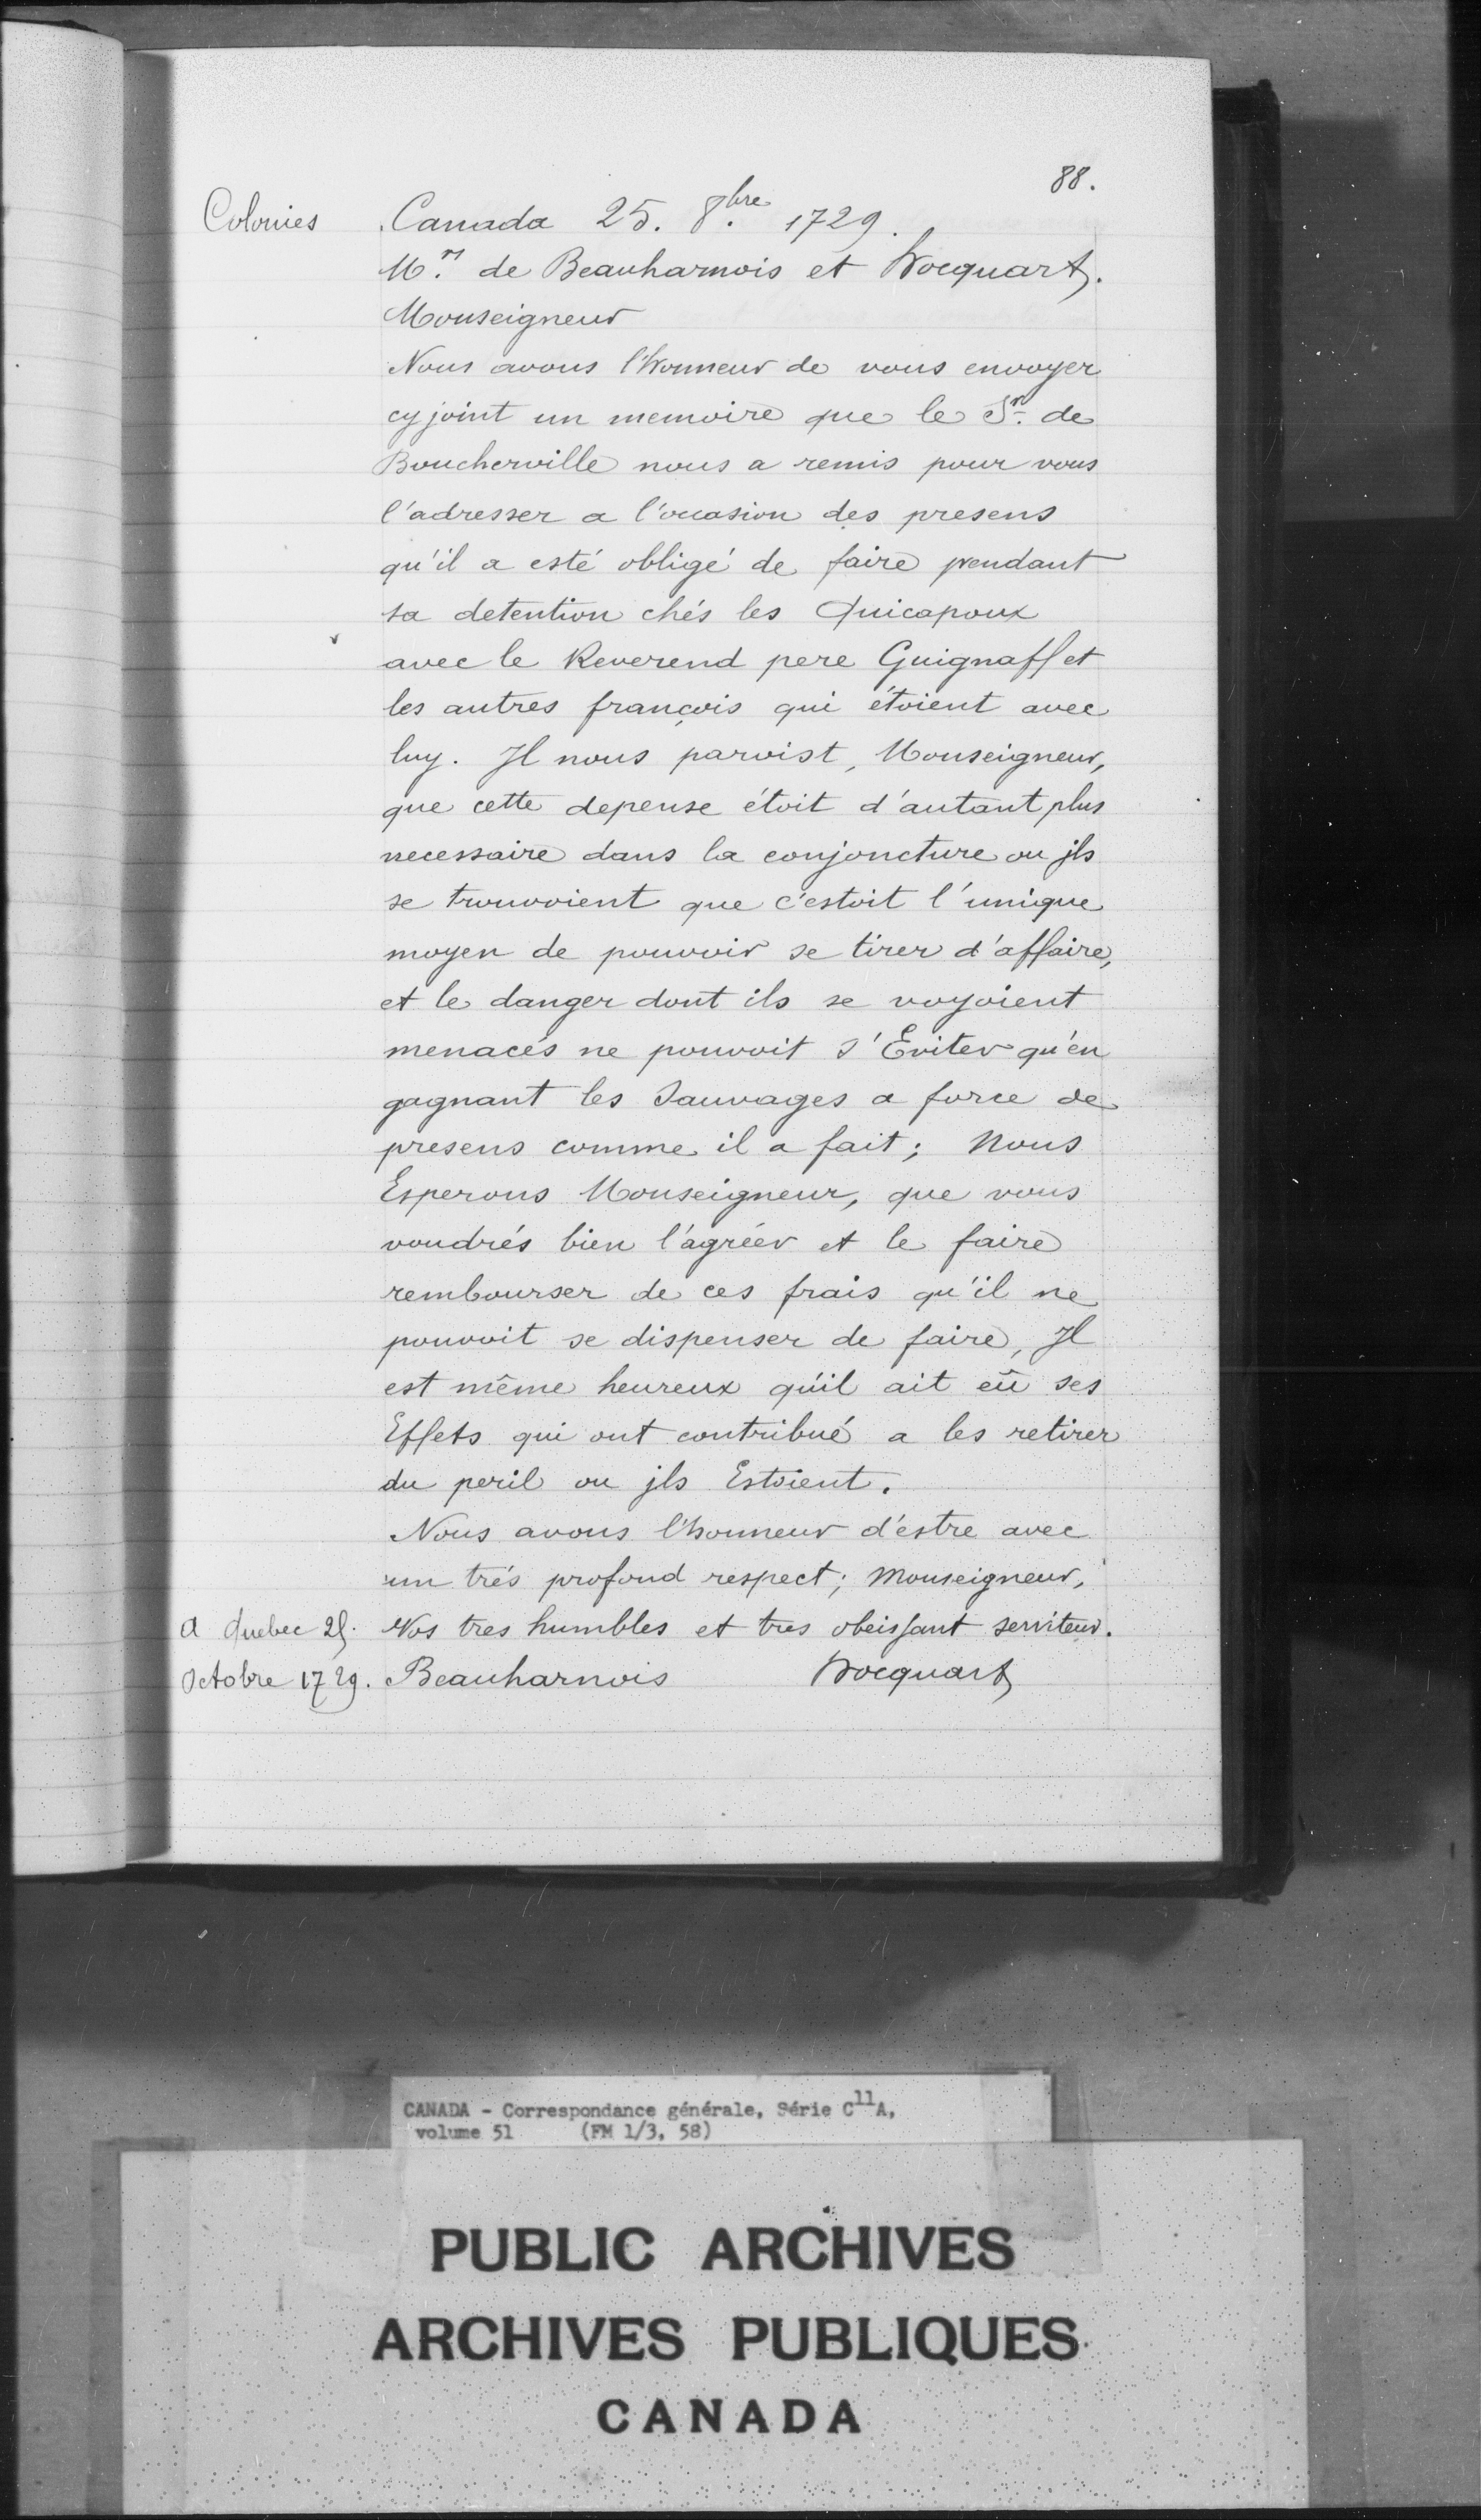 88.
Colonies
Canada 25. 8.bre 1729.
M.rs de Beauharnois et hocquart.
Monseigneur
Nous avons l'honneur de vous envoyer
cy joint un memoire que le Sr. de
Boucherville nous a remis pour vous
l'adresser a l'occasion des presens
qu'il a esté obligé de faire pendant
sa detention chés les Quicapoux
avec le Reverend pere Guignaff et
les autres françois qui étoient avec
luy. Il nous paroist, Monseigneur,
que cette depense étoit d'autant plus
necessaire dans la conjoncture ou jls
se trouvoient que c'estoit l'unique
moyen de pouvoir se tirer d'affaire,
et le danger dont ils se voyoient
menacés ne pouvoit s'Eviter qu'en
gagnant les Sauvages a force de
presens comme il a fait; Nous
Esperons Monseigneur, que vous
voudrés bien l'agréer et le faire
rembourser de ces frais qu'il ne
pouvoit se dispenser de faire, Il
est même heureux qu'il ait eû ses
Effets qui ont contribué a les retirer
du peril ou jls Estoient.
Nous avons l'honneur d'estre avec
un trés profond respect; Monseigneur,
A Quebec 25.
Octobre 1729.
Vos tres humbles et tres obeissant serviteur.
Beauharnois hocquart
CANADA - Correspondance générale, Série C11A,
volume 51 (FM 1/3, 58)
PUBLIC ARCHIVES
ARCHIVES PUBLIQUES
CANADA